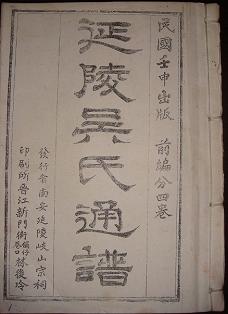 民國壬申出版 前編分四卷
延陵吳氏通譜
發行會南安延陵岐山宗祠
印刷所晉江新門街傾仔巷口林俊吟